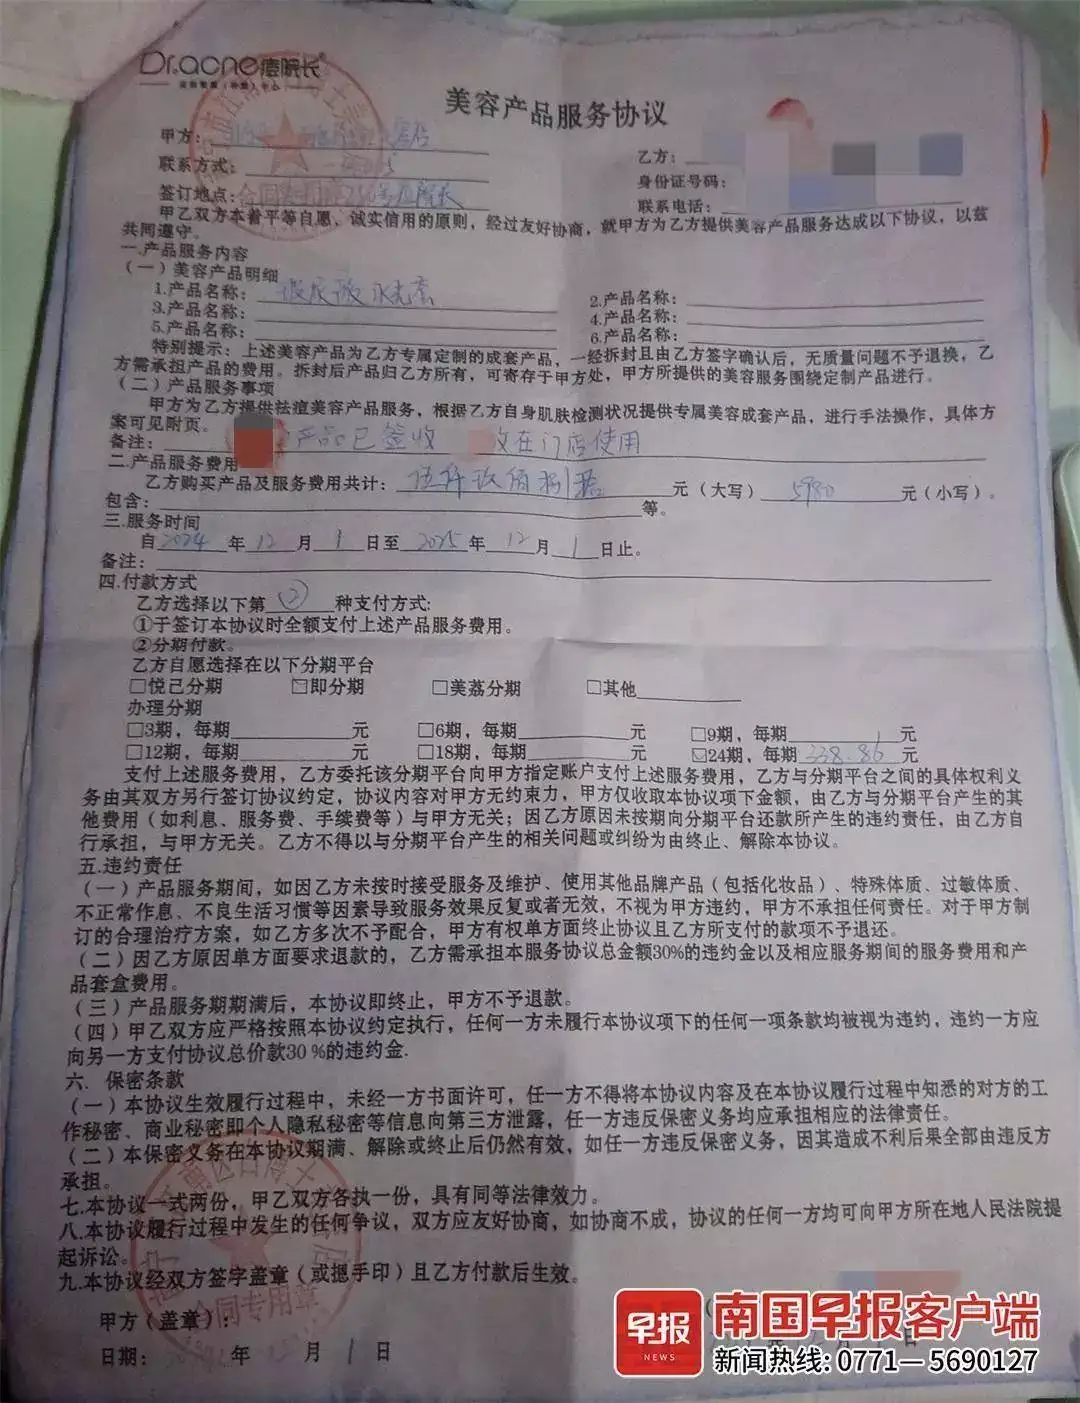 Dr.acne痘院长
美容产品服务协议
甲方:
联系方式:
签订地点:
乙方:
身份证号码:
联系电话:
甲乙双方本着平等自愿、诚实信用的原则,经过友好协商,就甲方为乙方提供美容产品服务达成以下协议,以兹
共同遵守。
一.产品服务内容
(一)美容产品明细
1.产品名称:
2.产品名称:
3.产品名称:
4.产品名称:
5.产品名称:
6.产品名称:
特别提示:上述美容产品为乙方专属定制的成套产品,一经拆封且由乙方签字确认后,无质量问题不予退换,乙
方需承担产品的费用。拆封后产品归乙方所有,可寄存于甲方处,甲方所提供的美容服务围绕定制产品进行。
(二)产品服务事项
甲方为乙方提供祛痘美容产品服务,根据乙方自身肌肤检测状况提供专属美容成套产品,进行手法操作,具体方
案可见附页。
备注: 产品已签收 在门店使用
二.产品服务费用
乙方购买产品及服务费用共计: 伍仟玖佰捌拾 元(大写) 5980 元(小写)。
包含: 等。
三.服务时间
自 2024 年 12 月 1 日至 2025 年 12 月 1 日止。
备注:
四.付款方式
乙方选择以下第 ② 种支付方式:
①于签订本协议时全额支付上述产品服务费用。
②分期付款。
乙方自愿选择在以下分期平台
□悦己分期 ☑即分期 □美荔分期 □其他
办理分期
□3期,每期 元 □6期,每期 元 □9期,每期 元
□12期,每期 元 □18期,每期 元 ☑24期,每期 338.86 元
支付上述服务费用,乙方委托该分期平台向甲方指定账户支付上述服务费用,乙方与分期平台之间的具体权利义
务由其双方另行签订协议约定,协议内容对甲方无约束力,甲方仅收取本协议项下金额,由乙方与分期平台产生的其
他费用(如利息、服务费、手续费等)与甲方无关;因乙方原因未按期向分期平台还款所产生的违约责任,由乙方自
行承担,与甲方无关。乙方不得以与分期平台产生的相关问题或纠纷为由终止、解除本协议。
五.违约责任
(一)产品服务期间,如因乙方未按时接受服务及维护、使用其他品牌产品(包括化妆品)、特殊体质、过敏体质、
不正常作息、不良生活习惯等因素导致服务效果反复或者无效,不视为甲方违约,甲方不承担任何责任。对于甲方制
订的合理治疗方案,如乙方多次不予配合,甲方有权单方面终止协议且乙方所支付的款项不予退还。
(二)因乙方原因单方面要求退款的,乙方需承担本服务协议总金额30%的违约金以及相应服务期间的服务费用和产
品套盒费用。
(三)产品服务期期满后,本协议即终止,甲方不予退款。
(四)甲乙双方应严格按照本协议约定执行,任何一方未履行本协议项下的任何一项条款均被视为违约,违约一方应
向另一方支付协议总价款30 %的违约金.
六. 保密条款
(一)本协议生效履行过程中,未经一方书面许可,任一方不得将本协议内容及在本协议履行过程中知悉的对方的工
作秘密、商业秘密即个人隐私秘密等信息向第三方泄露,任一方违反保密义务均应承担相应的法律责任。
(二)本保密义务在本协议期满、解除或终止后仍然有效,如任一方违反保密义务,因其造成不利后果全部由违反方
承担。
七.本协议一式两份,甲乙双方各执一份,具有同等法律效力。
八.本协议履行过程中发生的任何争议,双方应友好协商,如协商不成,协议的任何一方均可向甲方所在地人民法院提
起诉讼。
九.本协议经双方签字盖章(或摁手印)且乙方付款后生效。
合同专用章
甲方(盖章):
日期: 年 月 1 日
早报
NEWS
南国早报客户端
新闻热线:0771—5690127